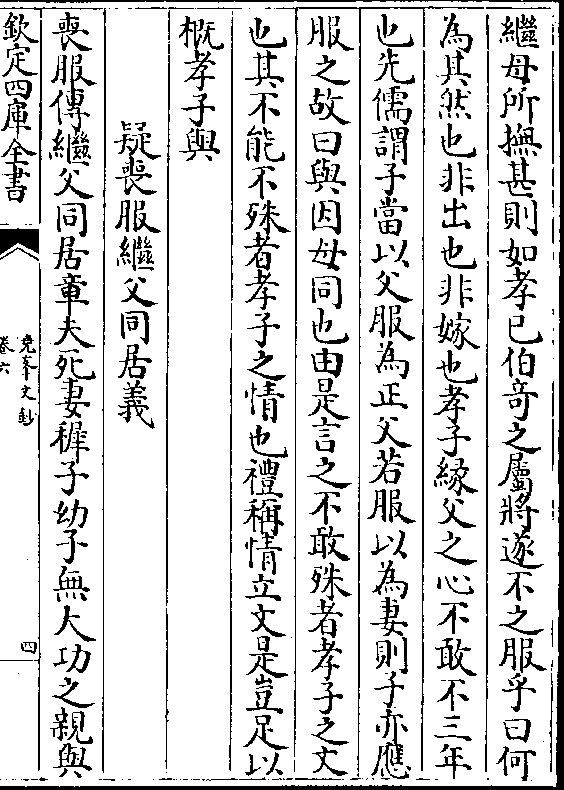 繼母所撫甚則如孝已伯奇之屬將遂不之服乎曰何
為其然也非出也非嫁也孝子縁父之心不敢不三年
也先儒謂子當以父服為正父若服以為妻則子亦應
服之故曰與因母同也由是言之不敢殊者孝子之文
也其不能不殊者孝子之情也禮稱情立文是豈足以
概孝子與
疑喪服繼父同居義
喪服傳繼父同居章夫死妻穉子幼子無大功之親與
欽定四庫全書
堯峯文鈔
卷六
四